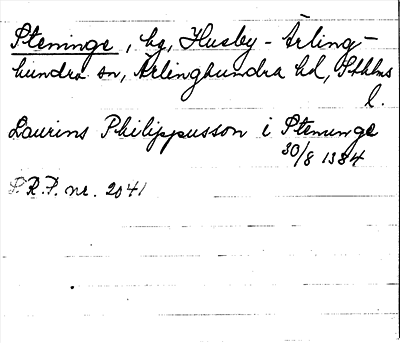 Steninge, hg, Husby-Ärling-
hundra sn, Ärlinghundra hd, Sthlms
l.
Laurins Philippusson i Steninge
30/8 1384
S.R.P. nr. 2041